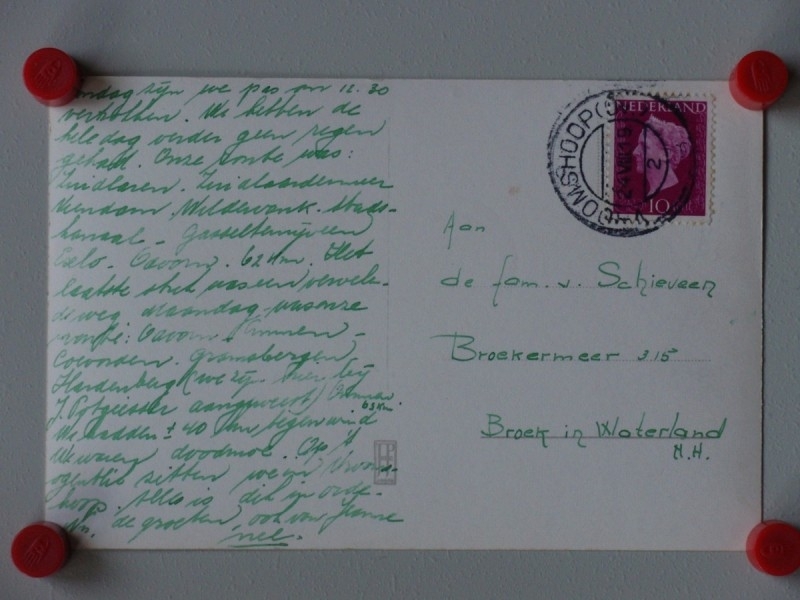 zijn we pas om 12.30
vertrokken. We hebben de
hele dag verder geen regen
gehad. Onze route was:
Zuidlaren. Zuidlaardermeer
Veendam, Wildervank. Stads-
kanaal - Gasselternijveen
Exlo. Odoorn. 62 km. Het
laatste stuk was een vervelen-
de weg. Maandag was onze
route: Odoorn - Emmen -
Coevorden. Gramsbergen,
Hardenberg (we zijn hier bij
aangeweest) Ommen.
63 km
We hadden ± 40 km tegenwind
We waren doodmoe. Op 't
ogenblik zitten we in Vrooms-
hoop. Alles is dik in orde.
de groeten, ook van
nel.
NEDERLAND
10
VROOMSHOOP
2
Aan
de fam. v. Schieveen
Broekermeer 315
Broek in Waterland
N.H.